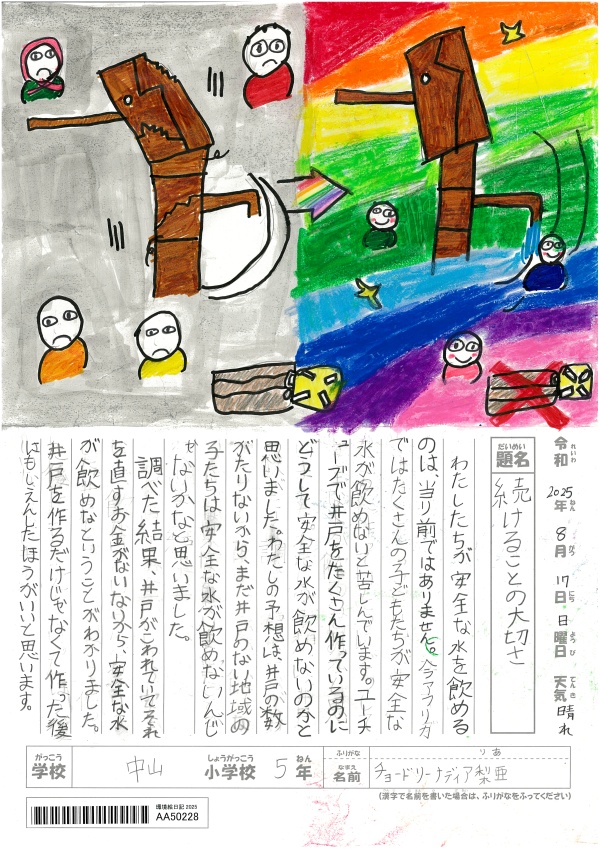 令和 2025年 8月 17日 日曜日 天気 晴れ
題名 続けることの大切さ
わたしたちが安全な水を飲める
のは、当り前ではありません。今アフリカ
ではたくさんの子どもたちが安全な
水が飲めないと苦しんでいます。ユーチ
ューブで井戸をたくさん作っているのに
どうして安全な水が飲めないのかと
思いました。わたしの予想は、井戸の数
がたりないから、まだ井戸のない地域の
子たちは安全な水が飲めないんじ
ゃないかなと思いました。
調べた結果、井戸がこわれていてそれ
を直すお金がないないから、安全な水
が飲めなということがわかりました。
井戸を作るだけじゃなくて作った後
はもしえんしたほうがいいと思います。
がっこう 学校 中山 しょうがっこう 小学校 5 ねん 年 ふりがな りあ なまえ 名前 チョードリーナディア梨亜
(漢字で名前を書いた場合は、ふりがなをふってください)
環境絵日記 2025
AA50228